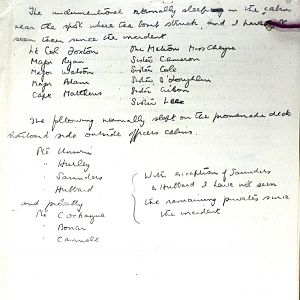 The undermentioned normally sleep in the cabin
near the spot where the bomb struck, and I have not
seen them since the incident
Lt Col Foxton The Matron Miss Cheyne
Major Ryan Sister Cameron
Major Watson Sister Cole
Major Adams Sister O'Loughlin
Capt Matthews Sister Gibson
Sister Lee
The following normally slept on the promenade deck
starboard side outside officers cabins.
Pte Unwin
" Hurley
" Saunders
" Hubbard
and possibly
Pte Cockayne
" Donar
" Cannell
With exception of Saunders
& Hubbard I have not seen
the remaining privates since
the incident